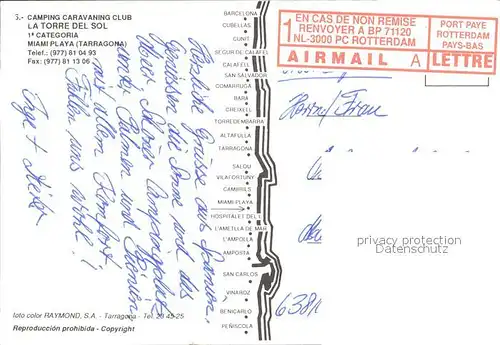 3.- CAMPING CARAVANING CLUB
LA TORRE DEL SOL
1ª CATEGORIA
MIAMI PLAYA (TARRAGONA)
Telf.: (977) 81 04 93
Fax: (977) 81 13 06
Herzliche Grüsse aus Spanien.
Genießen die Sonne und das
Meer. Schöner Campingplatz
unter Palmen und
mit allem Komfort.
Fühlen uns wohl!
Inge +
BARCELONA
CUBELLAS
CUNIT
SEGUR DE CALAFELL
CALAFELL
SAN SALVADOR
COMARRUGA
BARA
CREIXELL
TORREDEMBARRA
ALTAFULLA
TARRAGONA
SALOU
VILAFORTUNY
CAMBRILS
MIAMI PLAYA
HOSPITALET DEL I.
L'AMETLLA DE MAR
L'AMPOLLA
AMPOSTA
SAN CARLOS
VINAROZ
BENICARLO
PEÑISCOLA
1 EN CAS DE NON REMISE
RENVOYER A BP 71120
NL-3000 PC ROTTERDAM
AIRMAIL A
PORT PAYE
ROTTERDAM
PAYS-BAS
LETTRE
Herrn/Frau
privacy protection
Datenschutz
6381
foto color RAYMOND, S.A. - Tarragona - Tel. 20 45-25
Reproducción prohibida - Copyright